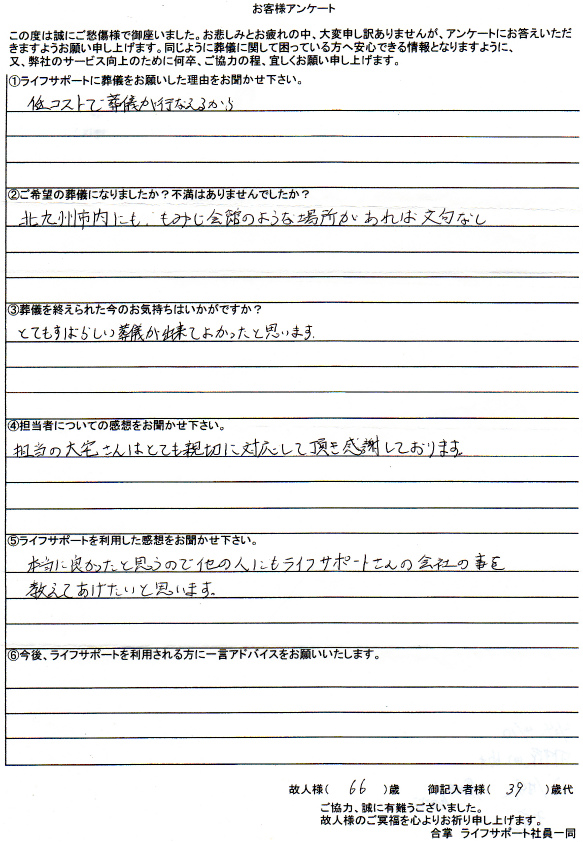 お客様アンケート
この度は誠にご愁傷様で御座いました。お悲しみとお疲れの中、大変申し訳ありませんが、アンケートにお答えいただ
きますようお願い申し上げます。同じように葬儀に関して困っている方へ安心できる情報となりますように、
又、弊社のサービス向上のために何卒、ご協力の程、宜しくお願い申し上げます。
①ライフサポートに葬儀をお願いした理由をお聞かせ下さい。
低コストで葬儀が行なえるから
②ご希望の葬儀になりましたか？不満はありませんでしたか？
北九州市内にも、もみじ会館のような場所があれば文句なし
③葬儀を終えられた今のお気持ちはいかがですか？
とてもすばらしい葬儀が出来てよかったと思います。
④担当者についての感想をお聞かせ下さい。
担当の大宅さんはとても親切に対応して頂き感謝しております。
⑤ライフサポートを利用した感想をお聞かせ下さい。
本当に良かったと思うので他の人にもライフサポートさんの会社の事を
教えてあげたいと思います。
⑥今後、ライフサポートを利用される方に一言アドバイスをお願いいたします。
故人様（ 66 ）歳 御記入者様（ 39 ）歳代
ご協力、誠に有難うございました。
故人様のご冥福を心よりお祈り申し上げます。
合掌 ライフサポート社員一同